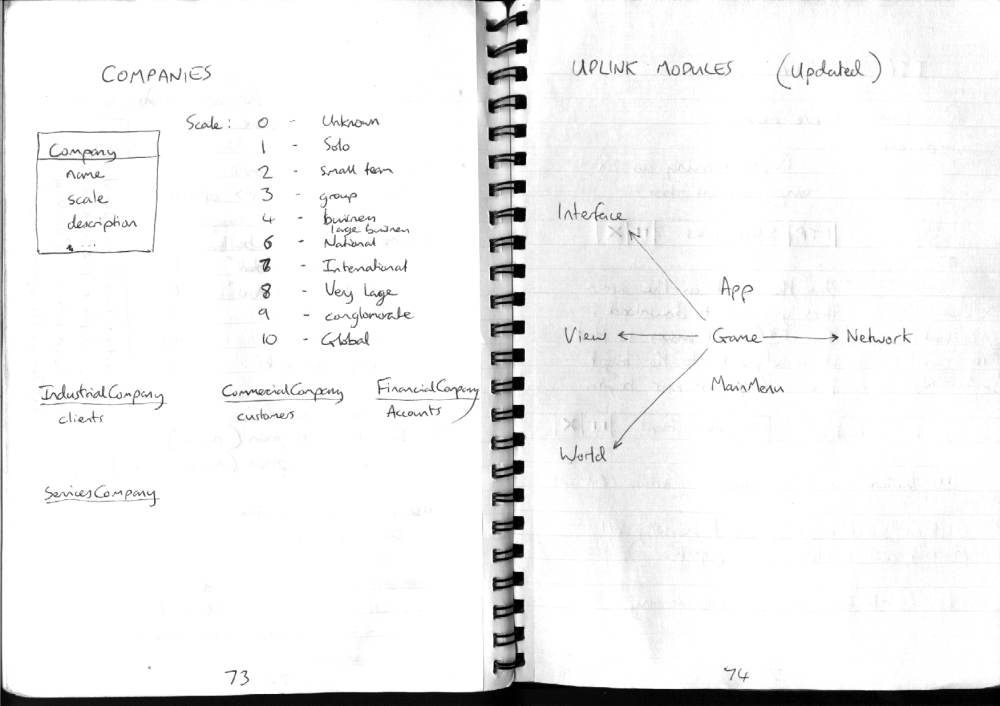 COMPANIES
Company
name
scale
description
Scale: 0 - Unknown
1 - Solo
2 - Small team
3 - group
4 - business
large business
6 - National
7 - International
8 - Very Lage
9 - conglomorate
10 - Global
IndustrialCompany
clients
CommercialCompany
customers
FinancialCompany
Accounts
ServicesCompany
73
UPLINK MODULES (Updated)
Interface
App
View
Game
Network
MainMenu
World
74